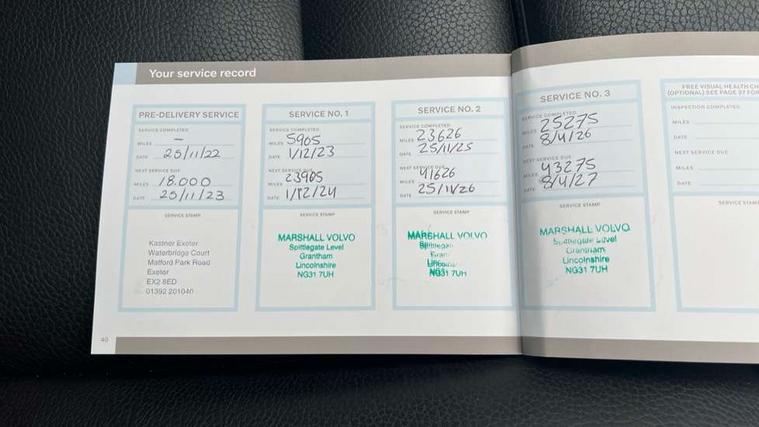 Your service record
PRE-DELIVERY SERVICE
SERVICE COMPLETED
MILES —
DATE 25/11/22
NEXT SERVICE DUE
MILES 18.000
DATE 25/11/23
SERVICE STAMP
Kastner Exeter
Waterbridge Court
Matford Park Road
Exeter
EX2 8ED
01392 201040
SERVICE NO. 1
SERVICE COMPLETED
MILES 5905
DATE 1/12/23
NEXT SERVICE DUE
MILES 23905
DATE 1/12/24
SERVICE STAMP
MARSHALL VOLVO
Spittlegate Level
Grantham
Lincolnshire
NG31 7UH
SERVICE NO. 2
SERVICE COMPLETED
MILES 23626
DATE 25/11/25
NEXT SERVICE DUE
MILES 41626
DATE 25/11/26
SERVICE STAMP
MARSHALL VOLVO
NG31 7UH
SERVICE NO. 3
SERVICE COMPLETED
MILES 25275
DATE 8/4/26
NEXT SERVICE DUE
MILES 43275
DATE 8/4/27
SERVICE STAMP
MARSHALL VOLVO
Spittlegate Level
Grantham
Lincolnshire
NG31 7UH
FREE VISUAL HEALTH CH
(OPTIONAL) SEE PAGE 37 FOR
INSPECTION COMPLETED
MILES
DATE
NEXT SERVICE DUE
MILES
DATE
SERVICE STAM
40